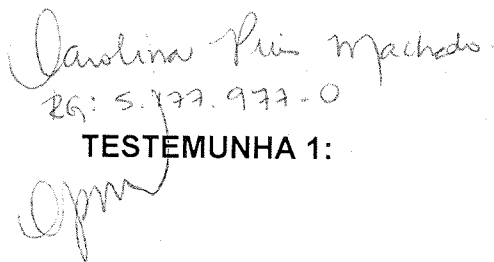 Carolina Pires Machado.
RG: 5.177.977-0
TESTEMUNHA 1: